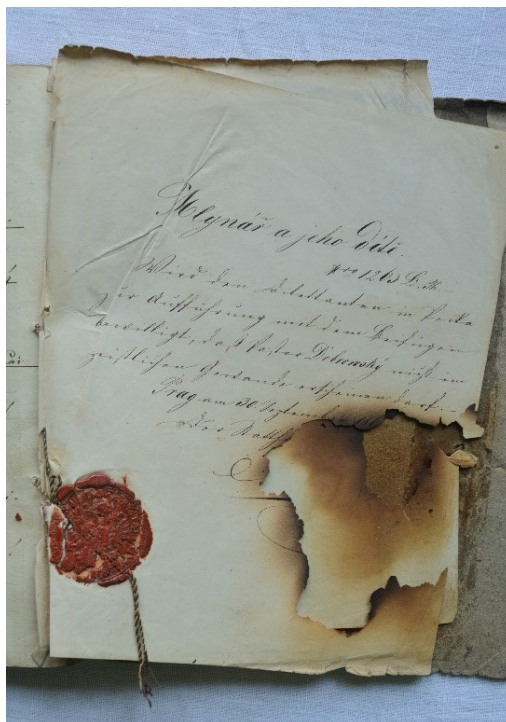 Mlynář a jeho dítě.
Nro 1263 B. B.
Wird den Dilettanten in
zur Aufführung mit dem Beifügen
bewilligt, daß Pastor Dobenský nicht im
geistlichen Gewande erscheinen darf.
Prag am 30 September
Der Statth